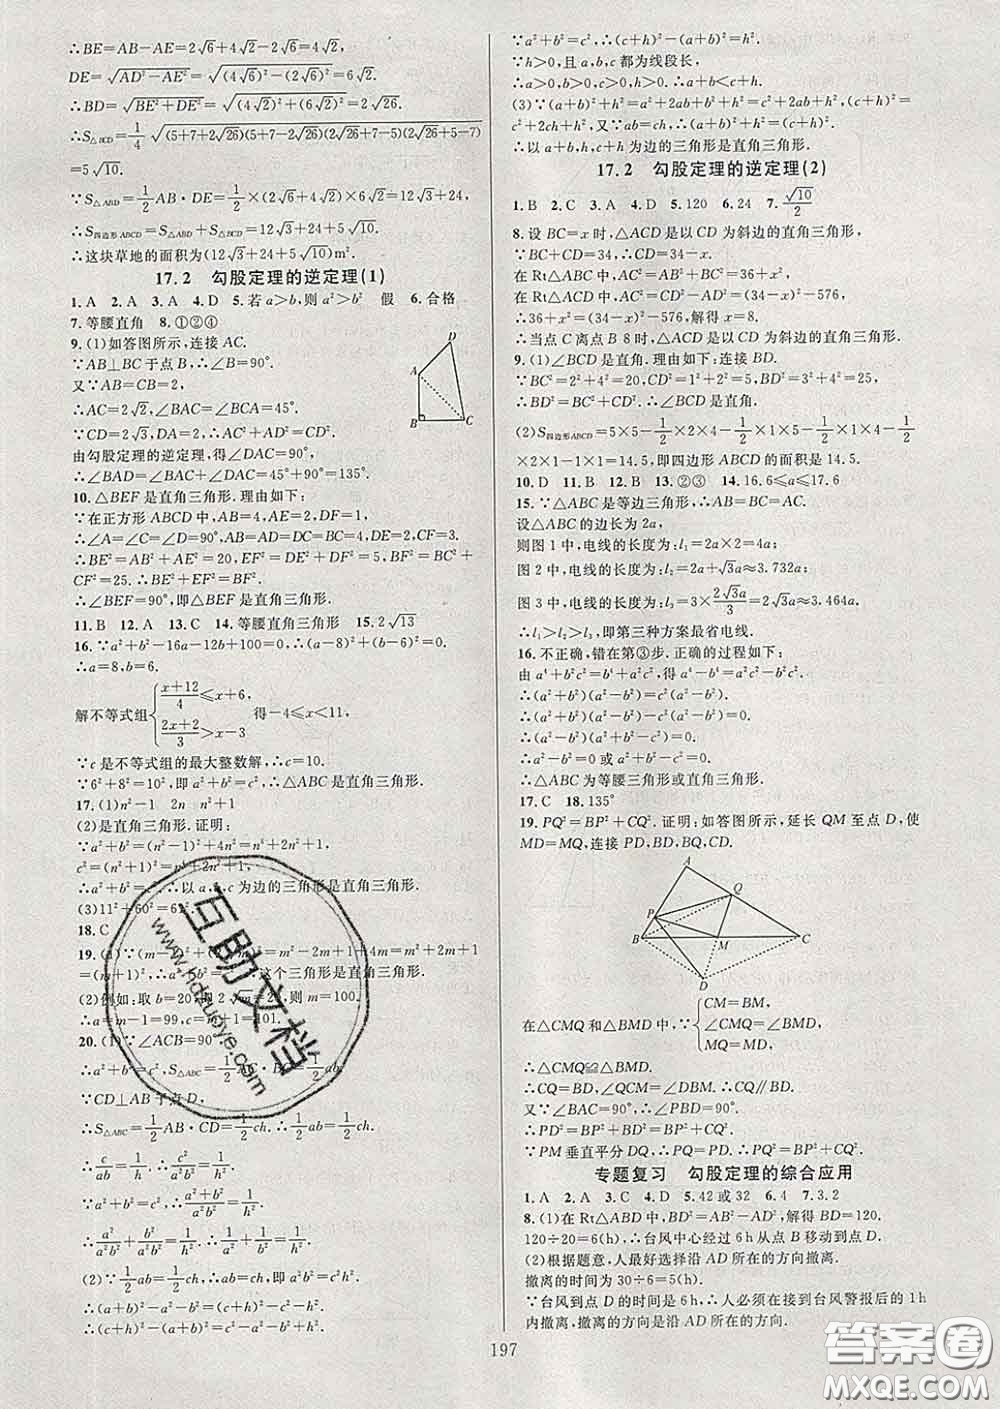 ∴BE=AB−AE=2√6+4√2−2√6=4√2.
DE=√(AD²−AE²)=√((4√6)²−(2√6)²)=6√2.
∴BD=√(BE²+DE²)=√((4√2)²+(6√2)²)=2√26.
∴S△DBC=1/4 √((5+7+2√26)(5+7−2√26)(2√26+7−5)(2√26+5−7))
=5√10.
∵S△ABD=1/2 AB·DE=1/2×(2√6+4√2)×6√2=12√3+24,
∴S四边形ABCD=S△ABD+S△BCD=12√3+24+5√10.
∴这块草地的面积为(12√3+24+5√10)m².
17.2 勾股定理的逆定理(1)
1.A 2.A 3.A 4.D 5.若a>b,则a²>b² 假 6.合格
7.等腰直角 8.①②④
9.(1)如答图所示,连接AC.
∵AB⊥BC于点B,∴∠B=90°.
又∵AB=CB=2,
∴AC=2√2,∠BAC=∠BCA=45°.
∵CD=2√3,AC²+AD²=CD².
由勾股定理的逆定理,得∠DAC=90°,
∴∠BAD=∠BAC+∠DAC=45°+90°=135°.
A
B
C
D
10.△BEF是直角三角形.理由如下:
∵在正方形ABCD中,AB=4,AE=2,DF=1,
∴∠A=∠C=∠D=90°,AB=AD=DC=BC=4,DE=2,CF=3.
∴BE²=AB²+AE²=20,EF²=DE²+DF²=5,BF²=BC²+
CF²=25.∴BE²+EF²=BF².
∴∠BEF=90°,即△BEF是直角三角形.
11.B 12.A 13.C 14.等腰直角三角形 15.2√13
16.∵a²+b²−16a−12b+100=0,∴(a−8)²+(b−6)²=0.
∴a=8,b=6.
解不等式组{(x+12)/4≤x+6, (2x+2)/3>x−3. 得−4≤x<11,
∵c是不等式组的最大整数解,∴c=10.
∵6²+8²=10²,即a²+b²=c²,∴△ABC是直角三角形.
17.(1)n²−1 2n n²+1
(2)是直角三角形.证明:
∵a²+b²=(n²−1)²+4n²=n⁴+2n²+1,
c²=(n²+1)²=n⁴+2n²+1,
∴a²+b²=c².∴以a,b,c为边的三角形是直角三角形.
(3)11²+60²=61².
18.C
19.(1)∵(m−1)²+(2√m)²=m²−2m+1+4m=m²+2m+1
=(m+1)²,∴a²+b²=c².∴这个三角形是直角三角形.
(2)例如:取b=20,即2√m=20,则m=100.
∴a=m−1=99,c=m+1=101.
20.(1)∵∠ACB=90°,
∴a²+b²=c²,S△ABC=1/2 AC·BC=1/2 ab.
∵CD⊥AB于点D,
∴S△ABC=1/2 AB·CD=1/2 ch.∴1/2 ab=1/2 ch.
∴c/ab=1/h.∴c²/a²b²=1/h².∴(a²+b²)/a²b²=1/h².
∴a²/a²b²+b²/a²b²=1/h².∴1/a²+1/b²=1/h².
(2)∵1/2 ab=1/2 ch,∴ab=ch,即a²b²=c²h².
∴(a+b)²−a²−b²=(c+h)²−c²−h².
∴(c+h)²−(a+b)²=c²+h²−a²−b².
∵a²+b²=c²,∴(c+h)²−(a+b)²=h².
∵h>0,且a,b,c都为线段长,
∴a>0,b>0,c>0,h>0.∴a+b<c+h.
(3)∵(a+b)²+h²=a²+2ab+b²+h²=c²+2ab+h²,(c+h)²=
c²+2ch+h²,又∵ab=ch,∴(a+b)²+h²=(c+h)².
∴以a+b,h,c+h为边的三角形是直角三角形.
17.2 勾股定理的逆定理(2)
1.B 2.C 3.A 4.D 5.120 6.24 7.√10/2
8.设BC=x时,△ACD是以CD为斜边的直角三角形,
∵BC+CD=34,∴CD=34−x.
在Rt△ABC中,AC²=AB²+BC²=36+x²,
在Rt△ACD中,AC²=CD²−AD²=(34−x)²−576,
∴36+x²=(34−x)²−576,解得x=8.
∴当点C离点B 8时,△ACD是以CD为斜边的直角三角形.
9.(1)∠BCD是直角.理由如下:连接BD.
∵BC²=2²+4²=20,CD²=1²+2²=5,BD²=4²+3²=25,
∴BD²=BC²+CD².∴∠BCD是直角.
(2)S四边形ABCD=5×5−1/2×2×4−1/2×1×5−1/2×1×4−1/2
×2×1−1×1=14.5,即四边形ABCD的面积是14.5.
10.D 11.B 12.B 13.②③ 14.16.6≤a≤17.6
15.∵△ABC是等边三角形,∴AB=BC=AC.
设△ABC的边长为2a,
则图1中,电线的长度为:l₁=2a×2=4a;
图2中,电线的长度为:l₂=2a+√3a≈3.732a;
图3中,电线的长度为:l₃=3×2√3a/3=2√3a≈3.464a.
∴l₁>l₂>l₃,即第三种方案最省电线.
16.不正确,错在第③步.正确的过程如下:
由a⁴+b²c²=b⁴+a²c²,得a⁴−b⁴=a²c²−b²c².
∴(a²+b²)(a²−b²)=c²(a²−b²).
∴(a²+b²)(a²−b²)−c²(a²−b²)=0.
∴(a²−b²)(a²+b²−c²)=0.
∴a²−b²=0或a²+b²−c²=0.
∴△ABC为等腰三角形或直角三角形.
17.C 18.135°
19.PQ²=BP²+CQ².证明:如答图所示,延长QM至点D,使
MD=MQ,连接PD,BD,BQ,CD.
A
Q
P
B
M
C
D
在△CMQ和△BMD中,∵{CM=BM, ∠CMQ=∠BMD, MQ=MD,
∴△CMQ≌△BMD.
∴CQ=BD,∠QCM=∠DBM.∴CQ∥BD.
又∵∠BAC=90°,∴∠PBD=90°.
∴DP²=BP²+BD²=BP²+CQ².
∵PM垂直平分DQ,∴PQ=PD.∴PQ²=BP²+CQ².
专题复习 勾股定理的综合应用
1.A 2.A 3.C 4.D 5.42或32 6.4 7.3.2
8.(1)在Rt△ABD中,BD²=AB²−AD²,解得BD=120.
120÷20=6(h).∴台风中心经过6h从点B移动到点D.
(2)根据题意,人最好选择沿AD所在的方向撤离.
撤离的时间为30÷6=5(h).
∵台风到点D的时间是6h,∴人必须在接到台风警报后的1h
内撤离,撤离的方向是沿AD所在的方向.
197
互助文档
www.hdzuoye.com
答案圈
MXQE.COM